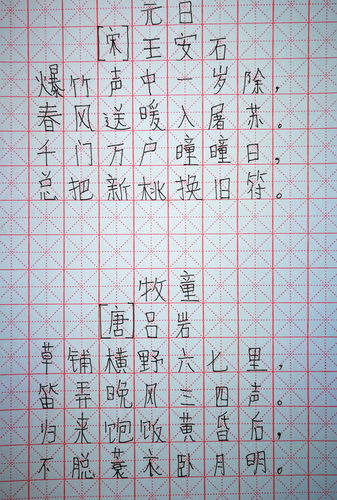 元日
[宋]王安石
爆竹声中一岁除，
春风送暖入屠苏。
千门万户瞳瞳日，
总把新桃换旧符。
牧童
[唐]吕岩
草铺横野六七里，
笛弄晚风三四声。
归来饱饭黄昏后，
不聪蓑衣卧月明。